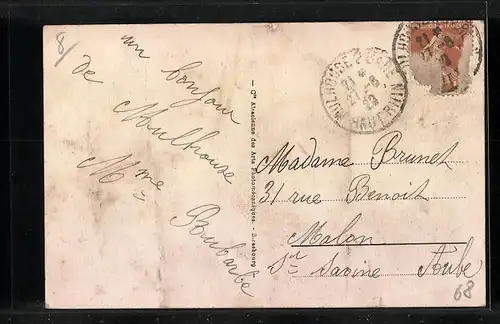 8/
un bonjour
de Mulhouse
Mme
— Cie Alsacienne des Arts Photomécaniques. - Strasbourg
Madame Brunet
31 rue Benoit
Malon
Ste Savine Aube
68
MULHOUSE 2 GARE
21 *
HAUT-RHIN
21 *